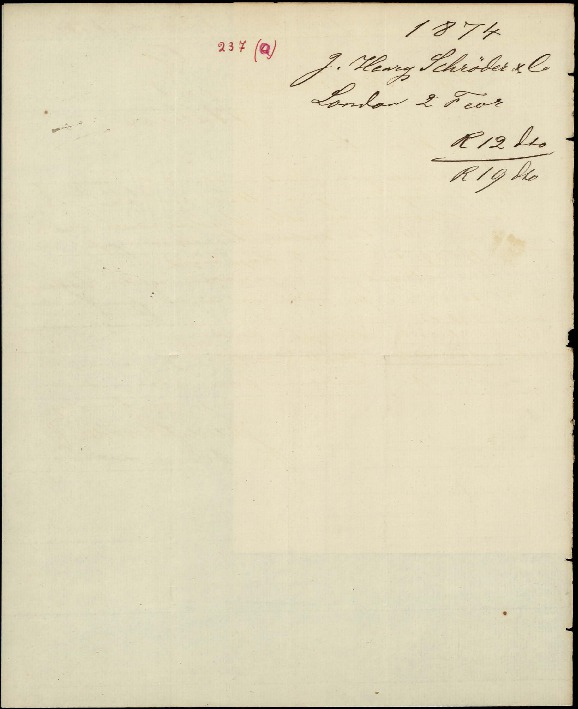 1874
237 (a)
J. Henry Schröder & Co
London 2 Feor
R 12 dto
R 19 dto